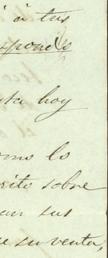 á tus
esponde
ta hoy
omo lo
rito sobre
an sus
e su venta,